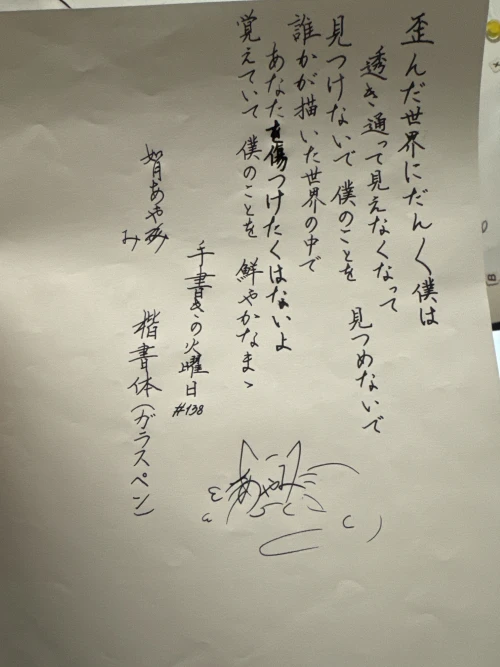 歪んだ世界にだんく僕は
透き通って見えなくなって
見つけないで 僕のことを 見つめないで
誰かが描いた世界の中で
あなたを傷つけたくはないよ
覚えていて 僕のことを 鮮やかなまゝ
手書きの火曜日
#138
如月あやみ
み
楷書体(ガラスペン)
あやみ